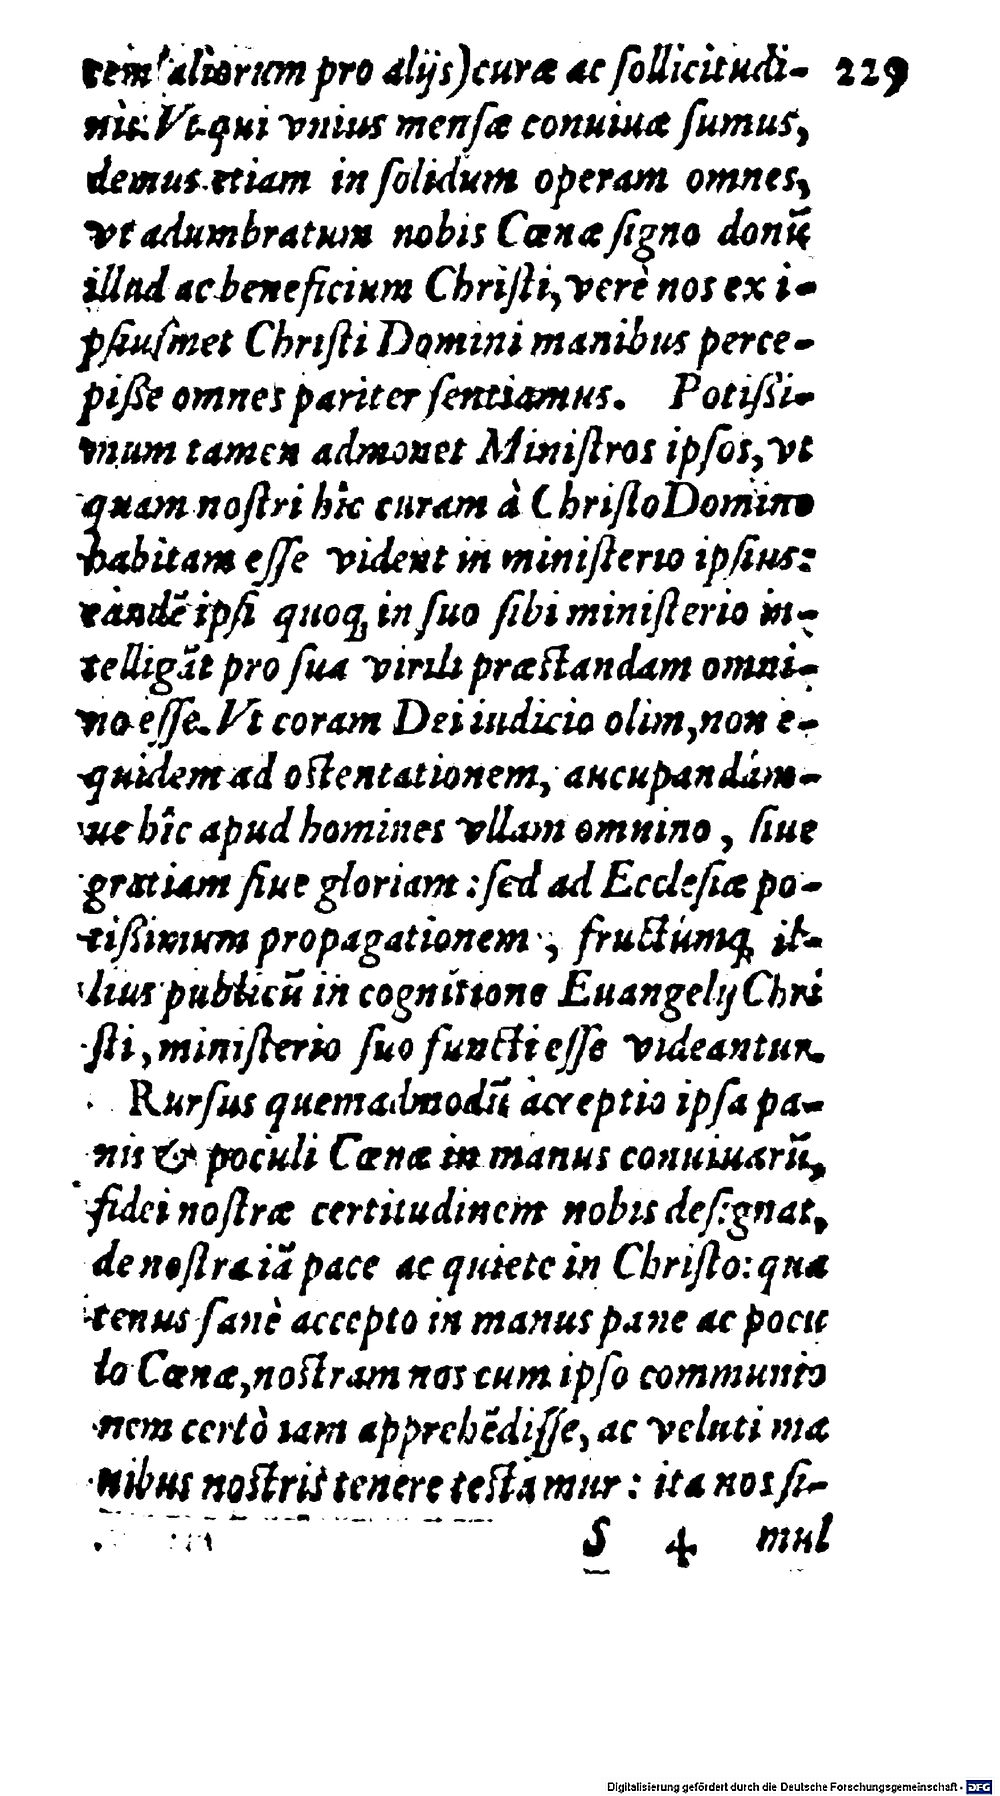 tem aliorum pro alijs) curæ ac ſollicitudi- 229
nis. Vt qui vnius menſæ conuiuæ ſumus,
demus etiam in ſolidum operam omnes,
vt adumbratum nobis Cœnæ ſigno donũ
illud ac beneficium Chriſti, verè nos ex i-
pſiuſmet Chriſti Domini manibus perce-
piſſe omnes pariter ſentiamus. Potiſſi-
mum tamen admonet Miniſtros ipſos, vt
quam noſtri hîc curam à Chriſto Domino
habitam eſſe vident in miniſterio ipſius:
eandẽ ipſi quoq; in ſuo ſibi miniſterio in-
telligãt pro ſua virili præſtandam omni-
no eſſe. Vt coram Dei iudicio olim, non e-
quidem ad oſtentationem, aucupandám-
ue hîc apud homines vllam omnino, ſiue
gratiam ſiue gloriam: ſed ad Eccleſiæ po-
tiſſimum propagationem, fructúmq; il-
lius publicũ in cognitione Euangelij Chri
ſti, miniſterio ſuo functi eſſe videantur.
Rurſus quemadmodũ acceptio ipſa pa-
nis & poculi Cœnæ in manus conuiuarũ,
fidei noſtræ certitudinem nobis deſignat,
de noſtra iã pace ac quiete in Chriſto: qua
tenus ſanè accepto in manus pane ac pocu
lo Cœnæ, noſtram nos cum ipſo communio
nem certò iam apprehẽdiſſe, ac veluti ma
nibus noſtris tenere teſtamur: ita nos ſi-
S 4 mul
Digitalisierung gefördert durch die Deutsche Forschungsgemeinschaft - DFG